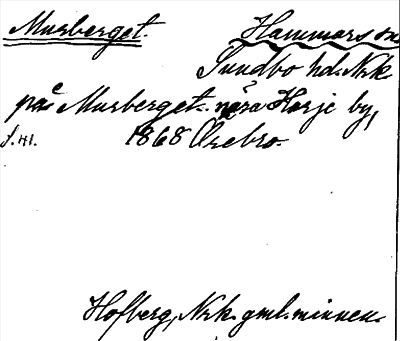 Murberget. Hammars sn
Sundbo hd. Nrk
på Murberget nära Harje by,
S. 41. 1868 Örebro.
Hofberg, Nrk. gml. minnen.